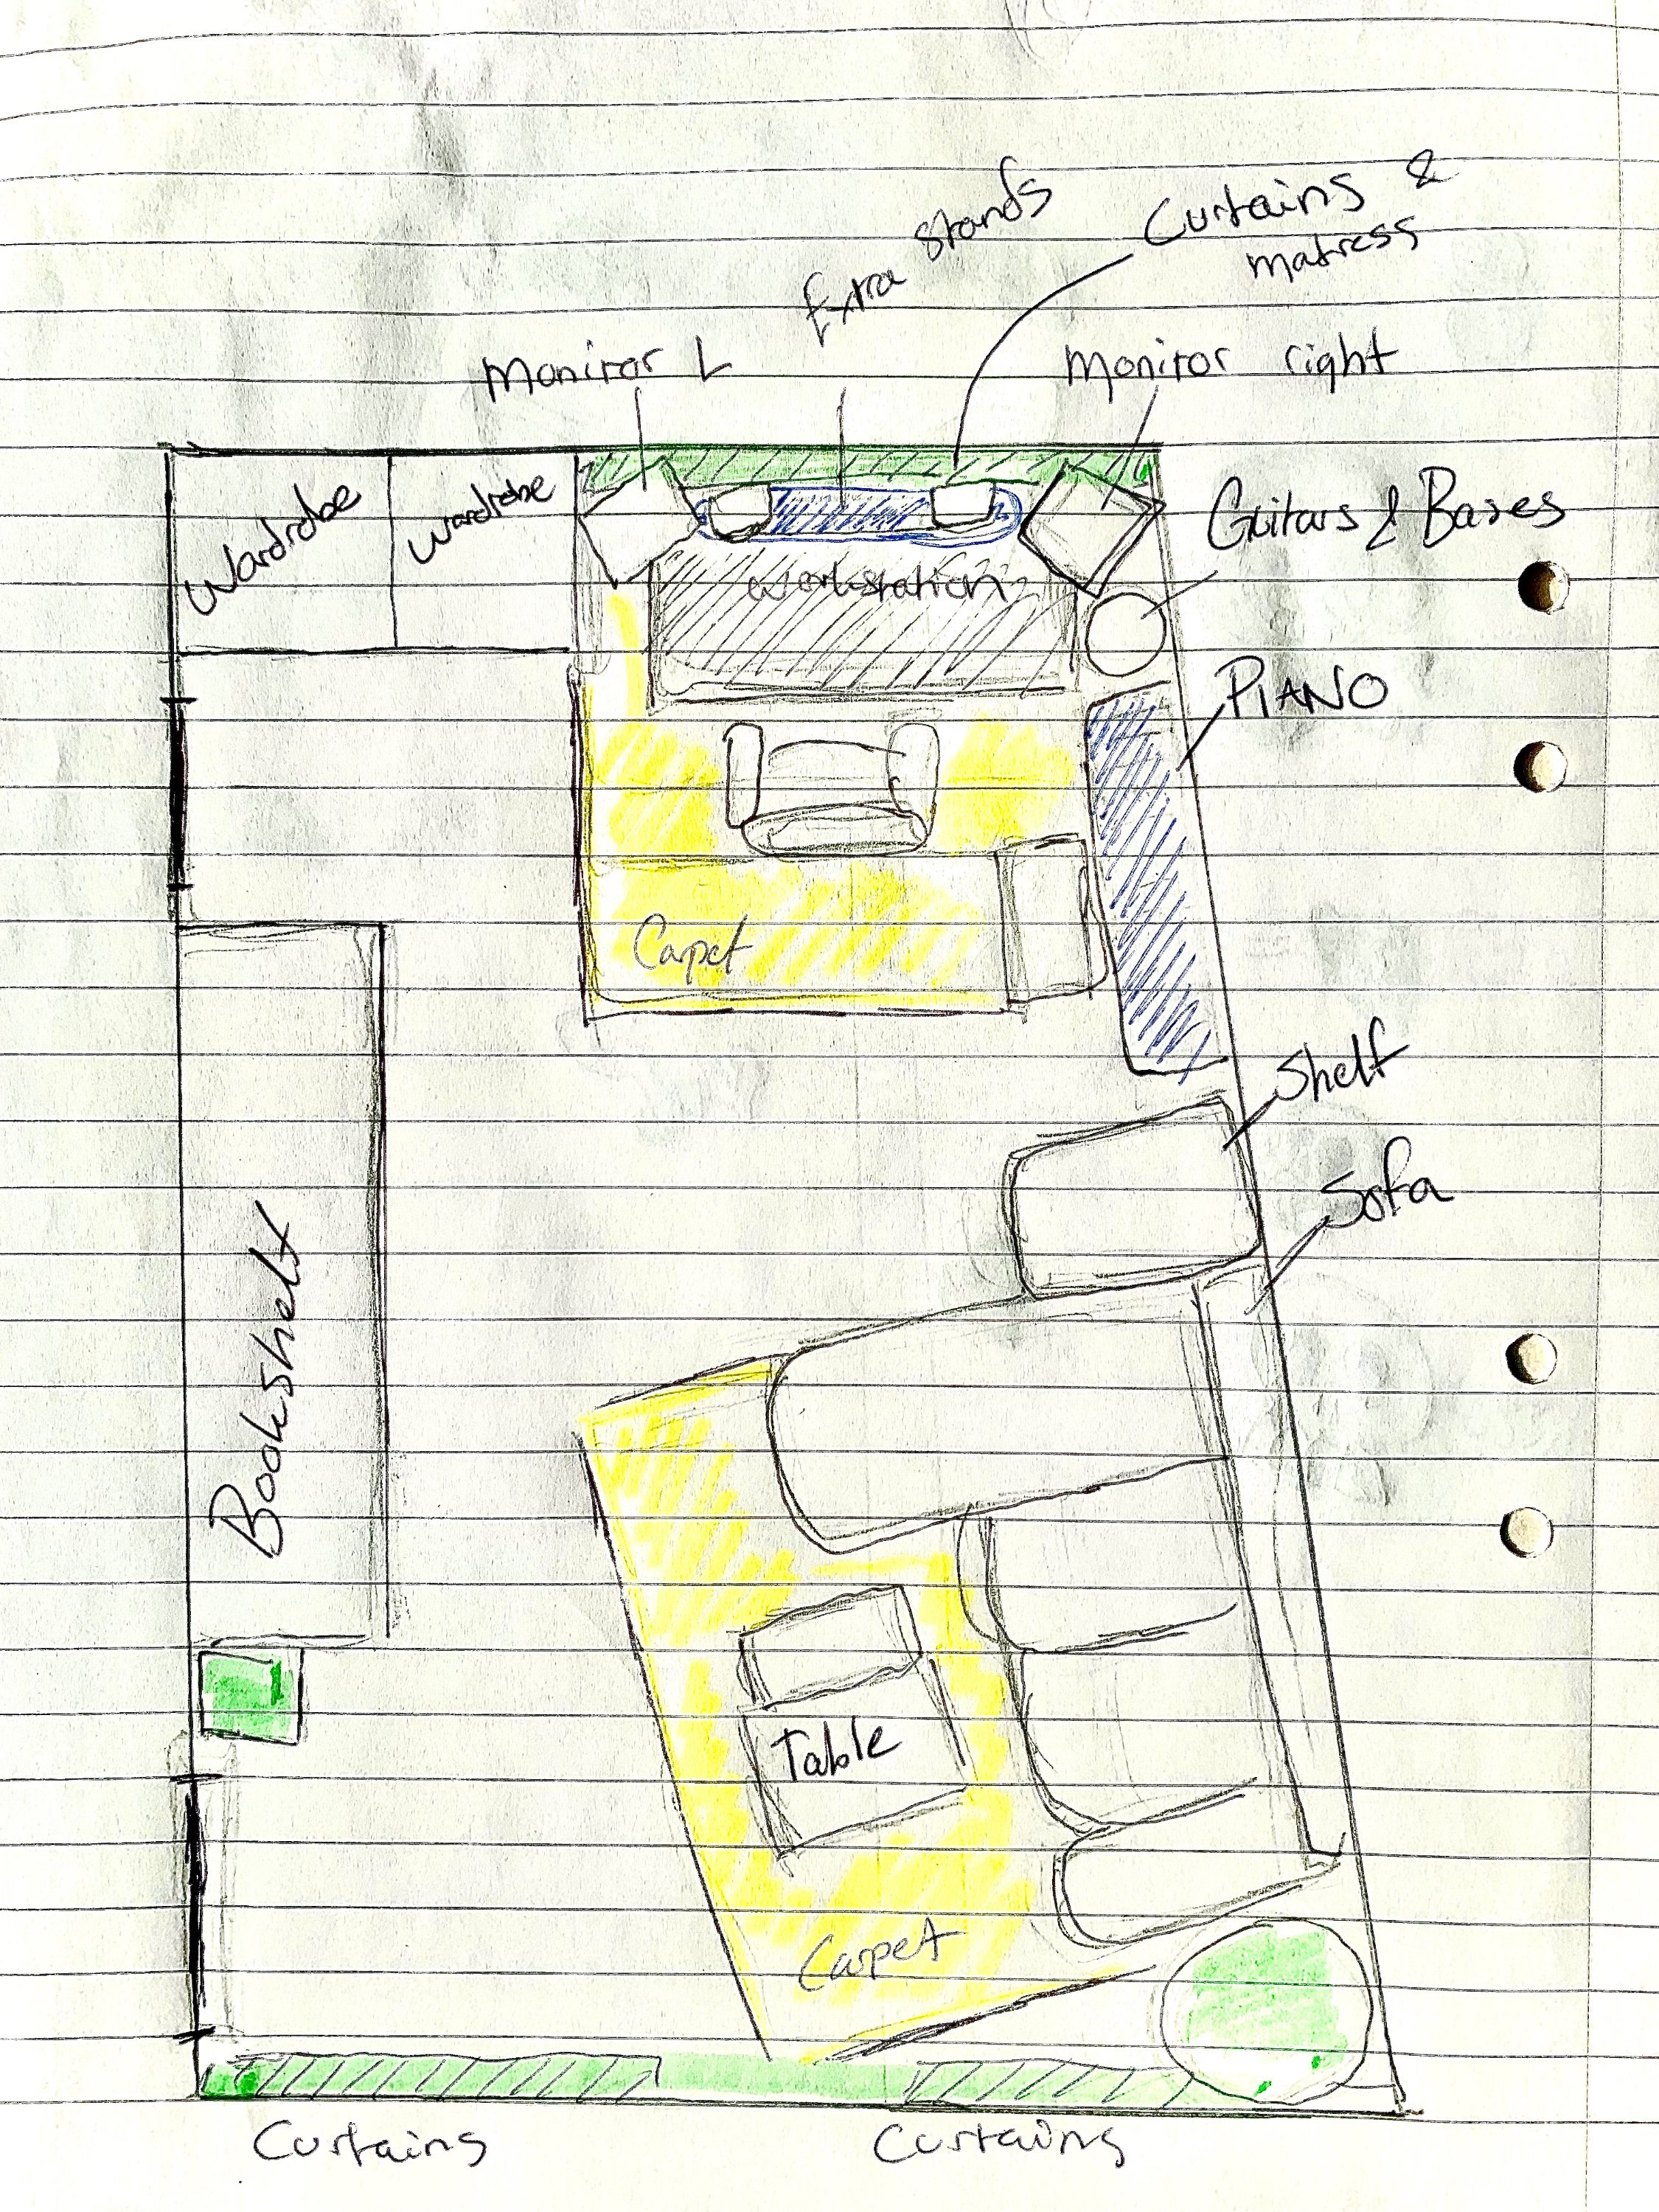 Extra stands
Curtains &
matress
Moniror L
Moniror right
Wardrobe
Wardrobe
Guitars & Bases
Workstation
PIANO
Carpet
Shelf
Sofa
Bookshelf
Table
Carpet
Curtains
Curtains